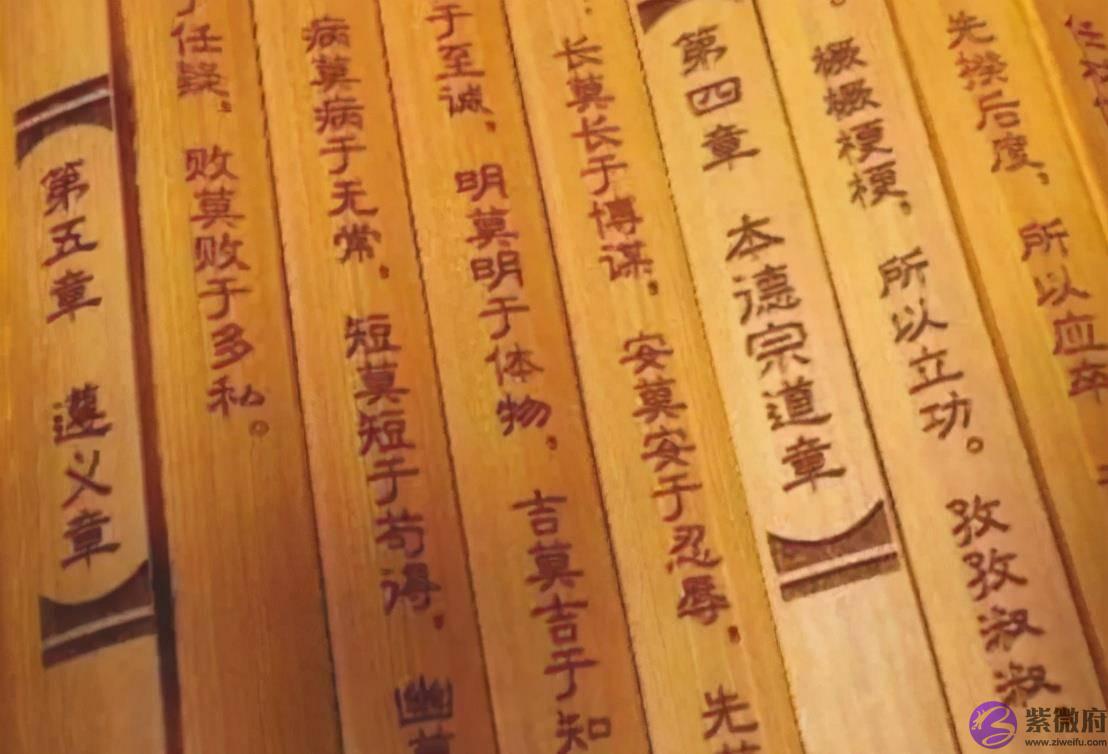 先揆后度，所以应卒
。橛橛梗梗，所以立功。孜孜淑淑
第四章 本德宗道章
长莫长于博谋，安莫安于忍辱，先莫
于至诚，明莫明于体物，吉莫吉于知
病莫病于无常，短莫短于苟得，幽莫
于任疑。败莫败于多私。
第五章 遵义章
紫微府
www.ziweifu.com